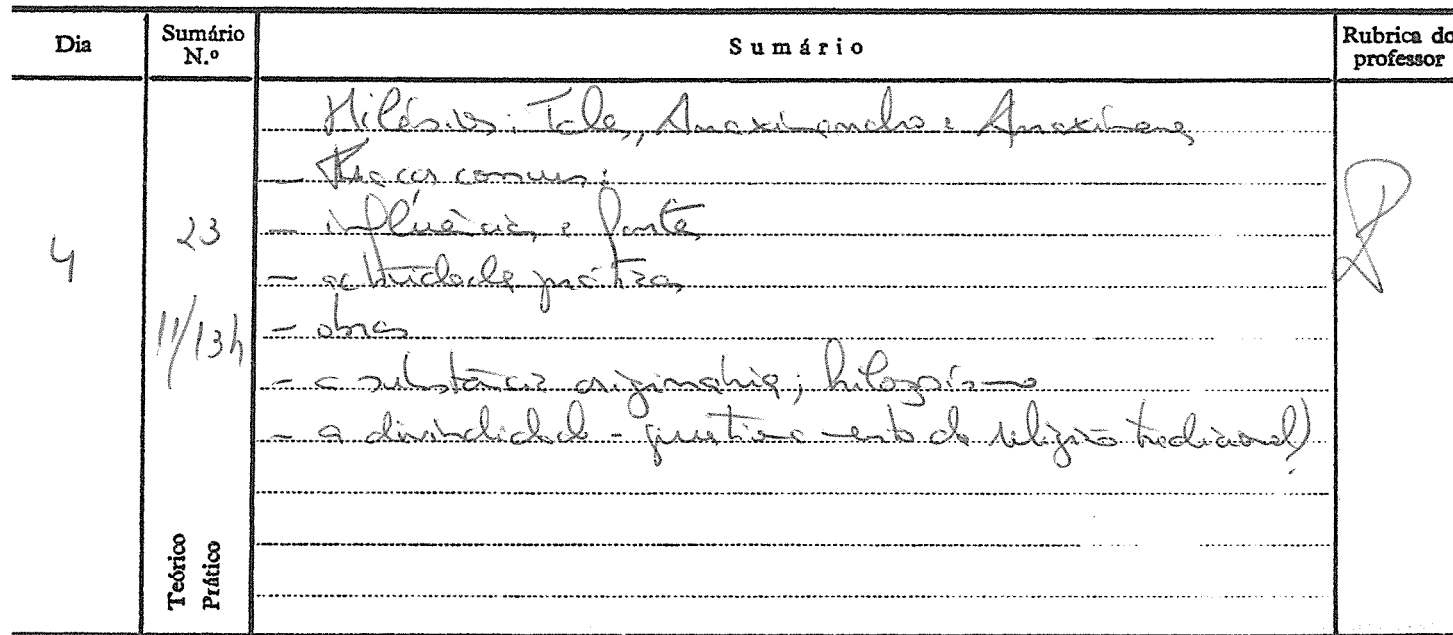 Dia
Sumário N.º
Sumário
Rubrica do professor
4
23
11/13h
Milésios: Tales, Anaximandro e Anaxímenes
- comuns:
- influências e fontes
- actividades práticas
- obras
- a substância originária; hilozoísmo
- a divindade - questionamento da religião tradicional
Teórico
Prático